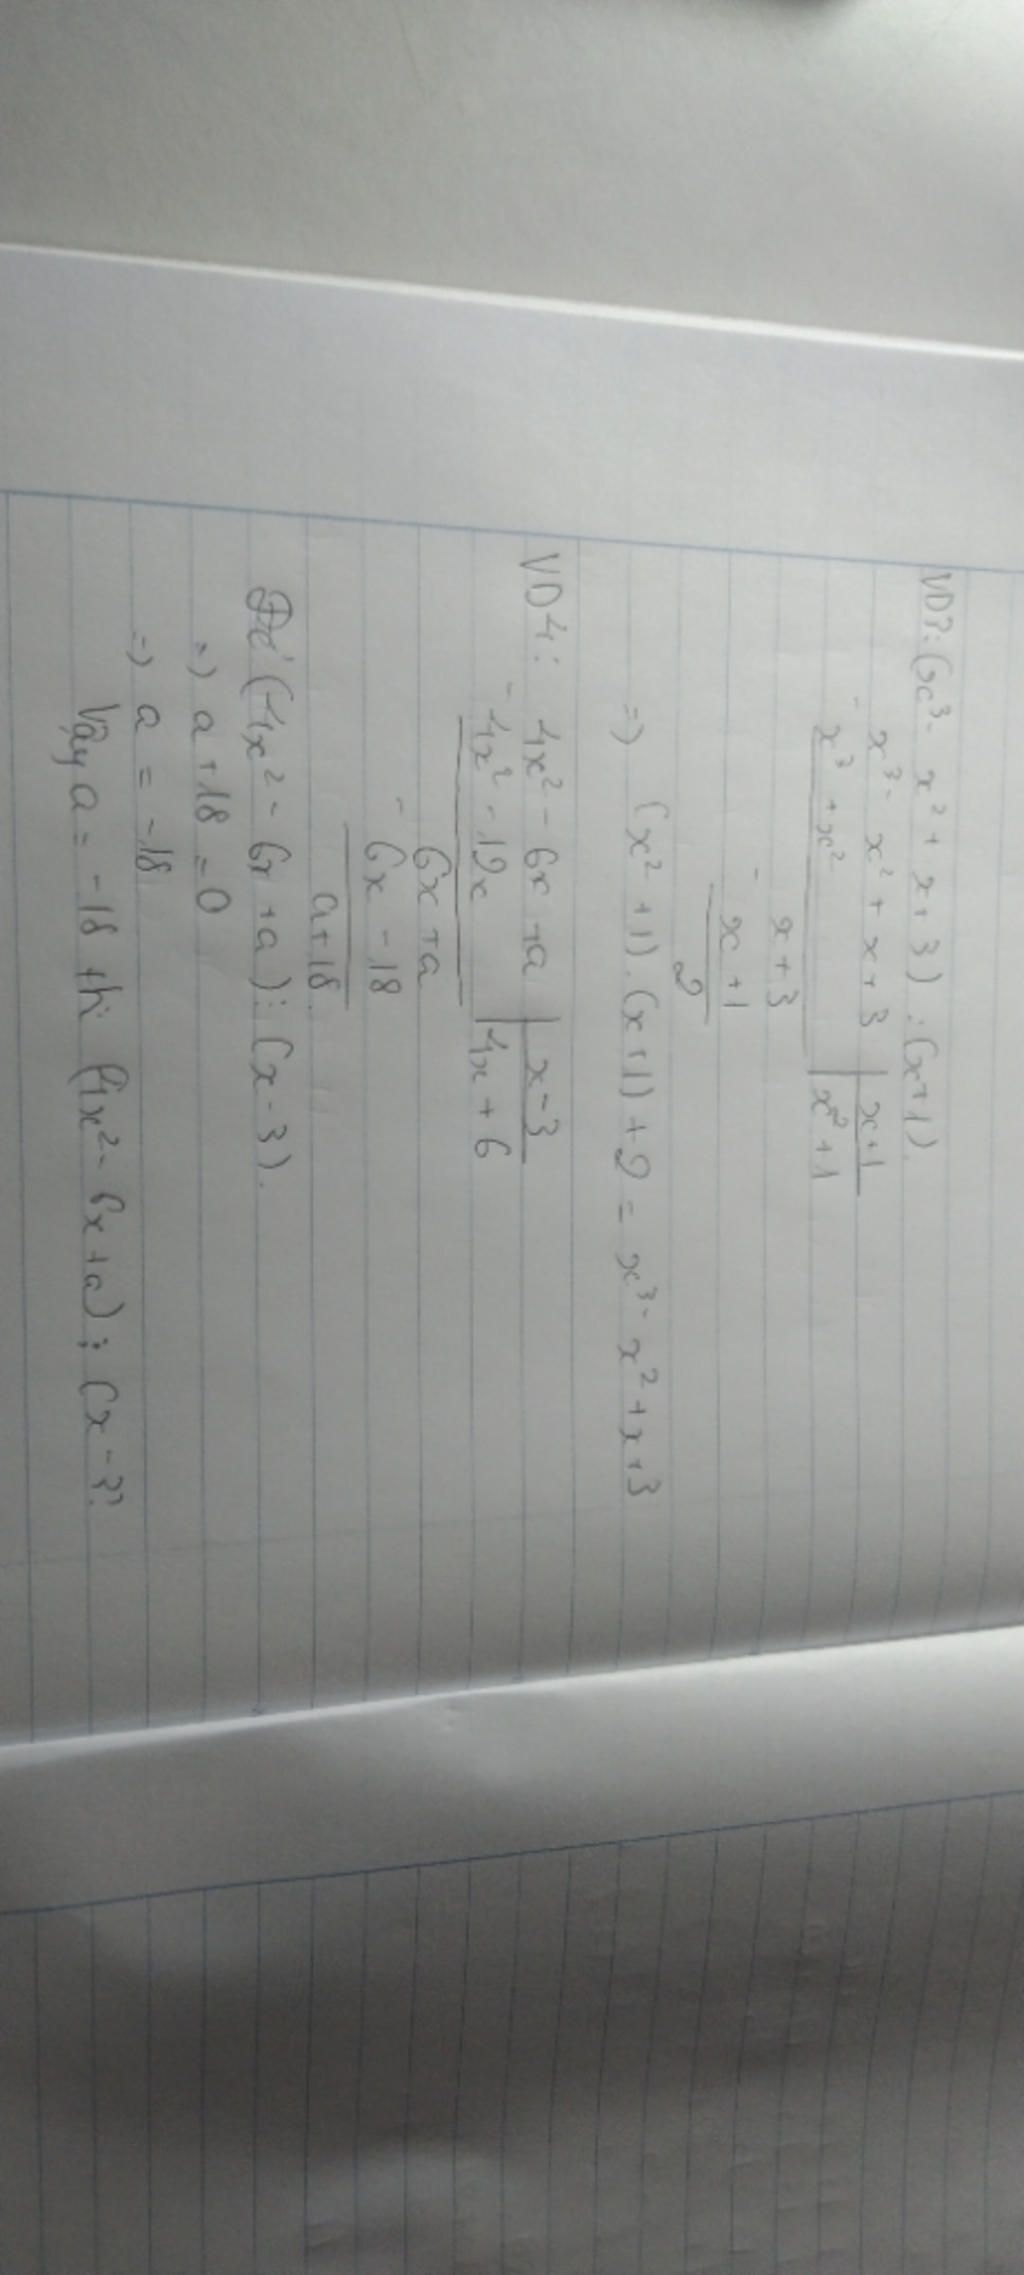 VD3: (x³ - x² + x + 3) : (x + 1).
x³ - x² + x + 3 | x + 1
- x³ + x² | x² + 1
x + 3
- x + 1
2
=) (x² + 1). (x + 1) + 2 = x³ - x² + x + 3
VD4: 4x² - 6x + a | x - 3
- 4x² - 12x | 4x + 6
6x + a
- 6x - 18
a + 18
Để (4x² - 6x + a) ⋮ (x - 3).
=) a + 18 = 0
=) a = -18
Vậy a = -18 thì (4x² - 6x + a) ⋮ (x - 3)